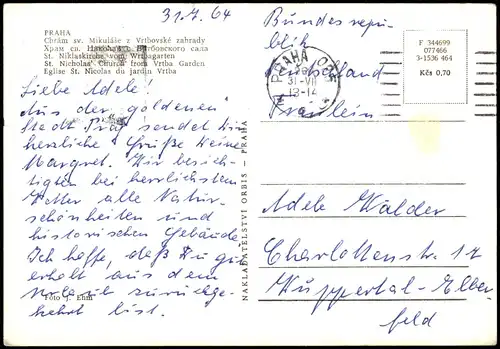 31.7.64
PRAHA
Chrám sv. Mikuláše z Vrtbovské zahrady
Храм св. Николая с Вртбовского сада
St. Niklaskirche vom Vrtbagarten
St. Nicholas' Church from Vrtba Garden
Eglise St. Nicolas du jardin Vrtba
Liebe Adele!
Aus der goldenen
Stadt Prag sendet Dir
herzliche Grüße Deine
Margret. Wir besich-
tigten bei herrlichstem
Wetter alle Natur-
schönheiten und
historischen Gebäude.
Ich hoffe, daß Du gut
erholt aus dem
Urlaub zurückge-
kehrt bist.
Foto J. Ehm
NAKLADATELSTVÍ ORBIS - PRAHA
Bundesrepu-
blik
Deutschland
PRAHA 025
31-VII
13-14
F 344699
077466
3-1536 464
Kčs 0,70
Fräulein
Adele Walder
Charlottenstr. 17
Wuppertal-Elber-
feld